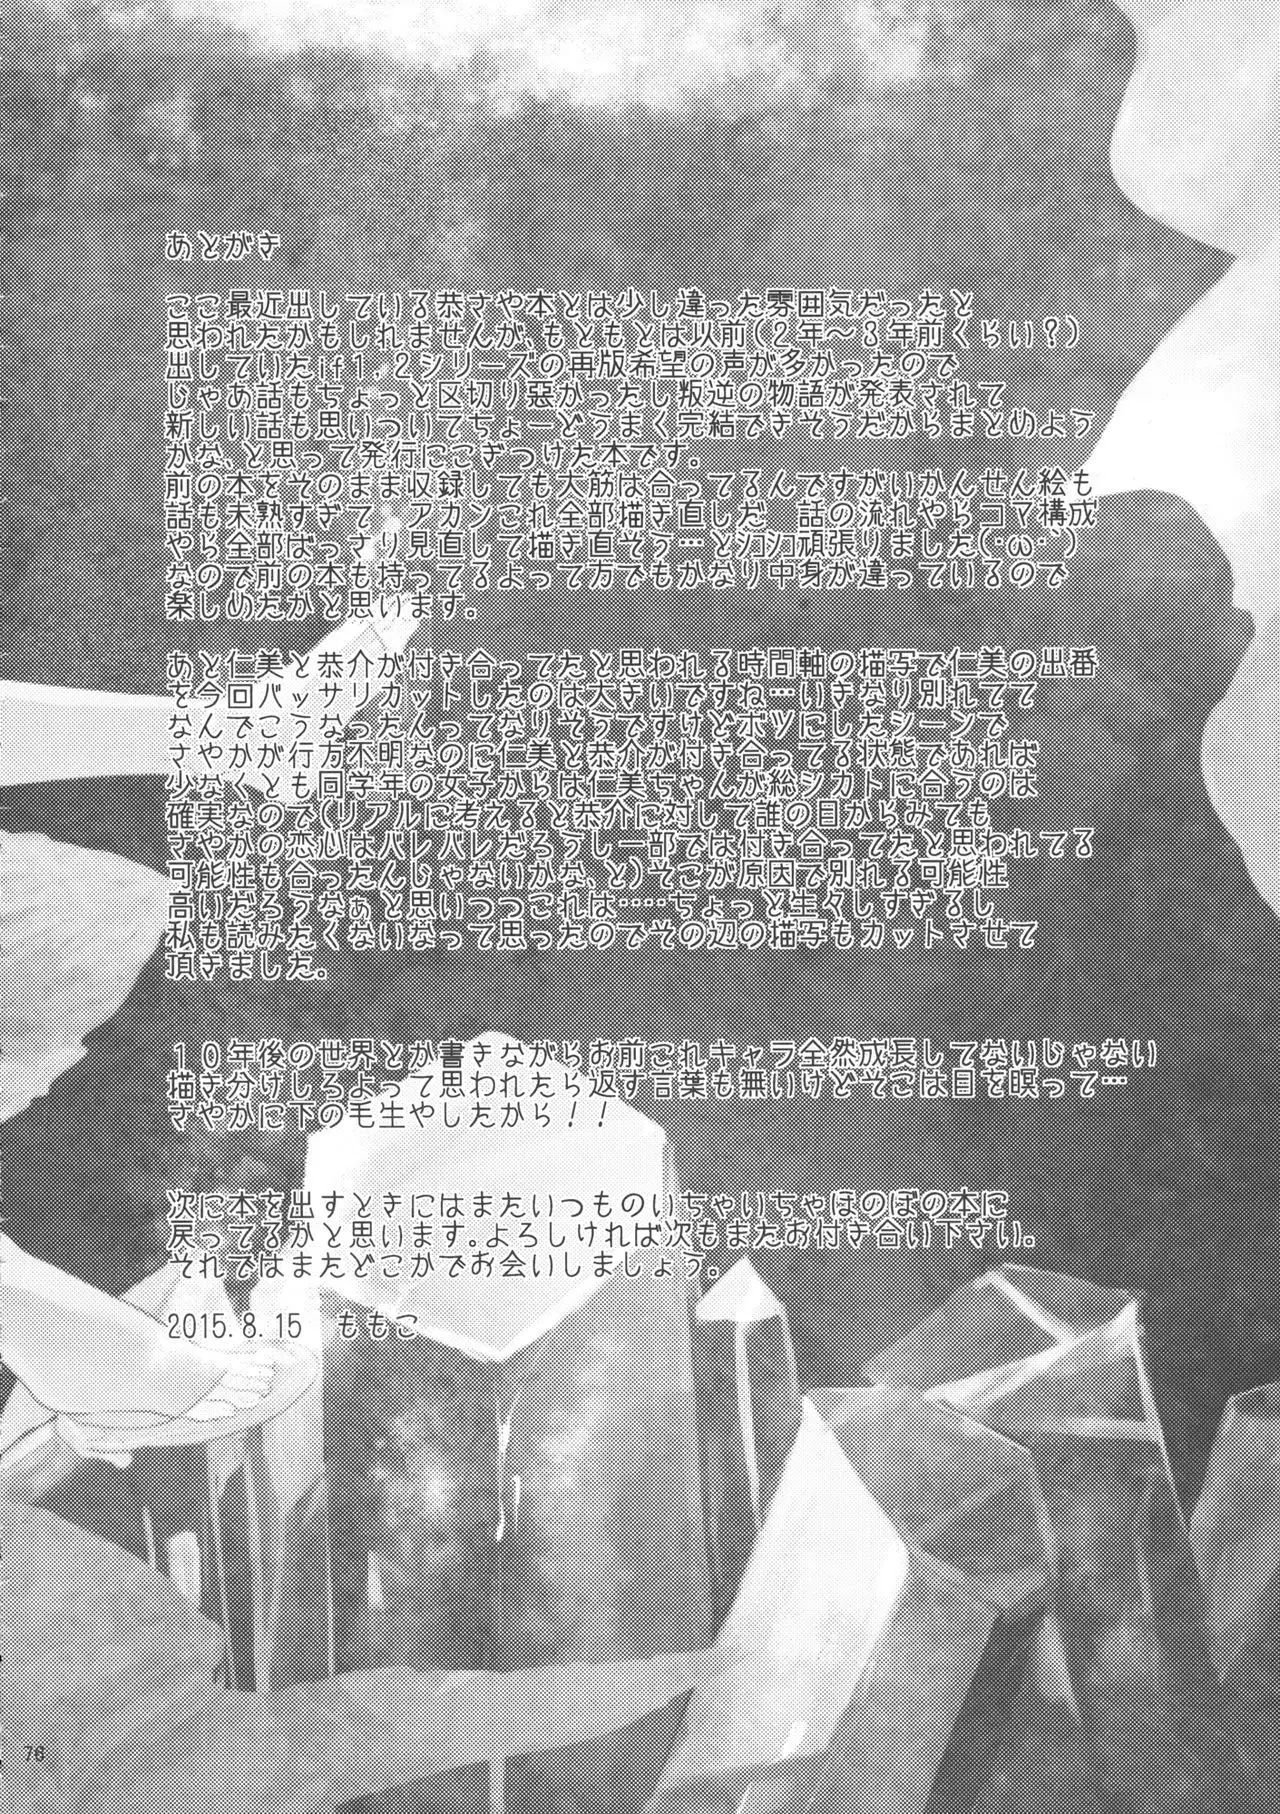 あとがき
ここ最近出している恭さや本とは少し違った雰囲気だったと
思われたかもしれませんが、もともとは以前(2年〜3年前くらい?)
出していたif1,2シリーズの再版希望の声が多かったので
じゃあ話もちょっと区切り悪かったし叛逆の物語が発表されて
新しい話も思いついてちょーどうまく完結できそうだからまとめよう
かな、と思って発行にこぎつけた本です。
前の本をそのまま収録しても大筋は合ってるんですがいかんせん絵も
話も未熟すぎて アカンこれ全部描き直しだ 話の流れやらコマ構成
やら全部ばっさり見直して描き直そう…とｼｺｼｺ頑張りました(･ω･`)
なので前の本も持ってるよって方でもかなり中身が違っているので
楽しめたかと思います。
あと仁美と恭介が付き合ってたと思われる時間軸の描写で仁美の出番
を今回バッサリカットしたのは大きいですね…いきなり別れてて
なんでこうなったんってなりそうですけどボツにしたシーンで
さやかが行方不明なのに仁美と恭介が付き合ってる状態であれば
少なくとも同学年の女子からは仁美ちゃんが総シカトに合うのは
確実なので(リアルに考えると恭介に対して誰の目からみても
さやかの恋心はバレバレだろうし一部では付き合ってたと思われてる
可能性も合ったんじゃないかな、と)そこが原因で別れる可能性
高いだろうなぁと思いつつこれは‥‥ちょっと生々しすぎるし
私も読みたくないなって思ったのでその辺の描写もカットさせて
頂きました。
10年後の世界とか書きながらお前これキャラ全然成長してないじゃない
描き分けしろよって思われたら返す言葉も無いけどそこは目を瞑って…
さやかに下の毛生やしたから!!
次に本を出すときにはまたいつものいちゃいちゃほのぼの本に
戻ってるかと思います。よろしければ次もまたお付き合い下さい。
それではまたどこかでお会いしましょう。
2015.8.15 ももこ
76